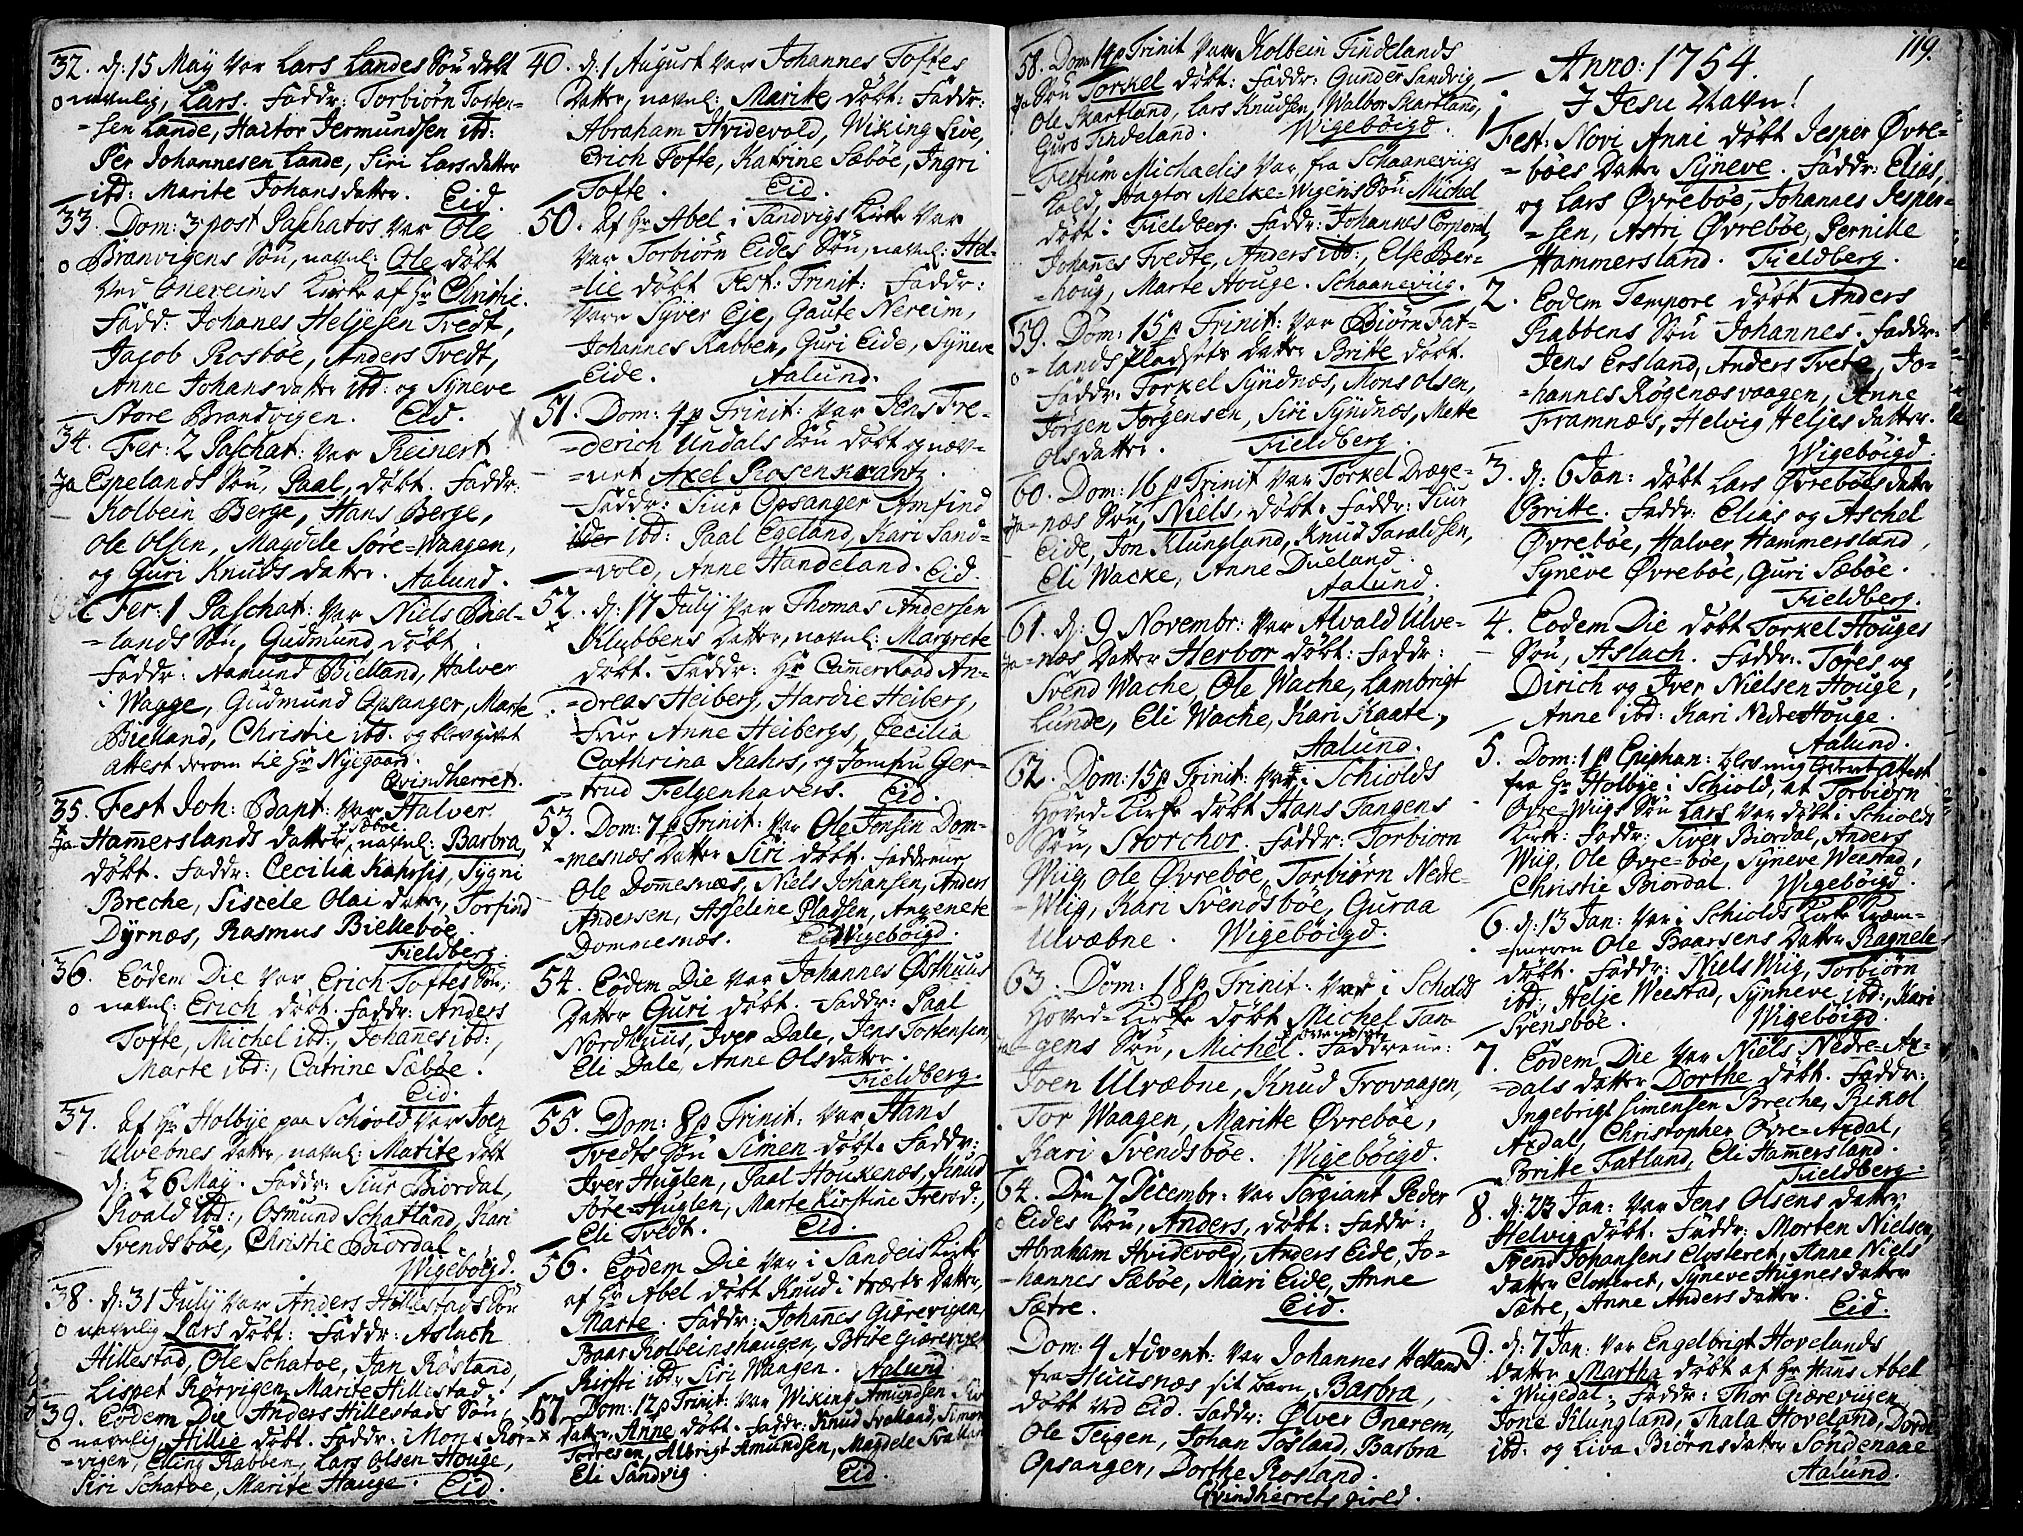 32. d: 15 May var Lars Landes Søn døbt
navnlig, Lars. Faddr: Torbiørn Tosten-
-sen Lande, Hactor Jermundsen ibd:
Per Johannesen Lande, Siri Larsdatter
ibd: Marite Johansdatter. Eid.
33. Dom: 3 post Paschatos var Ole
o Branvigens Søn, navnl: Ole døbt
ved Enereims Kirke af Hr Christie.
Fadd: Johanes Heljesen Tvedt,
Jacob Rosbøe, Anders Tvedt,
Anne Johansdatter ibd: og Syneve
Store Brandvigen. Eid.
34. Fer: 2 Paschat: var Reinert
Ja Espelands Søn, Paal, døbt. Faddr:
Kolbein Berge, Hans Berge,
Ole Olsen, Magdele Søre-Waagen,
og Guri Knudsdatter. Aalund.
Fer. 1 Paschat: var Niels Biel-
-lands Søn, Gudmund døbt.
Faddr: Aamund Bielland, Halver
i Wagge, Gudmund Opsanger, Marte
Bielland, Christie ibd: og blev givet
attest derom til Hr Nyegaard.
Qvindherret.
35. Fest Joh: Bapt: var Halver
Ja Hammerslands datter, navnl: Barbra,
døbt. Faddr: Cecilia Kahrsis, Sygni
Breche, Siscele Olai datter, Torfind
Dyrnæs, Rasmus Biellebøe.
Fieldberg.
36. Eodem Die var Erich Toftes Søn,
o navnl: Erich døbt. Faddr: Anders
Tofte, Michel ibd:, Johanes ibd:,
Marte ibd:, Catrine Sæbøe.
Eid.
37. Af Hr Holbye paa Schiold var Joen
Ulvebnes datter, navnl: Marite døbt
d: 26 May. Faddr: Siur Biordal,
Roald ibd:, Osmund Schatland, Kari
Svendsbøe, Christie Biordal.
Wigebøigd.
38. d: 31 July var Anders Hillestads Søn
o navnlig Lars døbt: Faddr: Aslach
Hillestad, Ole Schatoe, Jan Røsland,
Lispet Rørvigen, Marite Hillestad.
39. Eodem Die Anders Hillestads Søn,
o navnlig, Hillie døbt. Faddr: Mons Rør-
-vigen, Elling Rabben, Lars Olsen Houge,
Siri Schatoe, Marite Hauge. Eid.
40. d: 1 August var Johannes Toftes
Datter, navnl: Marite døbt: Faddr:
Abraham Hvidevold, Wiking Live,
Erich Tofte, Katrine Sæbøe, Ingri
Tofte. Eid.
50. Af Hr Abel i Sandvigs Kirke var
var Torbiørn Eides Søn, navnl: Hel-
-lie døbt Fest: Trinit: Faddr:
vare Syver Eje, Gaute Nereim,
Johannes Rabben, Guri Eide, Syneve
Eide. Aalund.
51. Dom: 4 p Trinit: var Jens Fre-
-derich Undals Søn døbt og næv-
-net Axel Rosenkrantz.
Faddr: Siur Opsanger Amfind
ibd: Paal Egeland, Kari Sand-
-vold, Anne Handeland. Eid.
52. d: 17 July var Thomas Andersen
x Klubbens Datter, navnl: Margrete
døbt. Faddr: Hr CammerRaad An-
-dreas Heiberg, Hardie Heiberg,
Frue Anne Heibergs, Cecilia
Cathrina Kahrs, og Jomfru Ger-
-trud Felgenhavers. Eid.
53. Dom: 7 p Trinit: var Ole Jonsen Dom-
x -mesnæs Datter Siri døbt. Faddrene
Ole Dommesnæs, Niels Johansen, Anders
Andersen, Asseline Pladsen, Angenete
Dommesnæs. Wigebøigd.
54. Eodem Die var Johannes Østhuus
Datter Guri døbt. Faddr: Paal
Nordhuus, Iver Dale, Jens Tostensen,
Eli Dale, Anne Olsdatter.
Fieldberg.
55. Dom: 8 p Trinit: var Hans
Tvedts Søn Simen døbt. Faddr:
Iver Huglen, Paal Houkenæs, Knud
Søre-Huglen, Marte Kirstine Trerød:,
Eli Tvedt. Eid.
56. Eodem Die var i Sandeis Kirke
af Hr Abel døbt Knud i træets Datter,
Marte. Faddr: Johannes Giærevigen,
Baar Kolbeinshaugen, Brite Giærevigen
Kirsti ibd: Siri Waagen. Aalund.
57. Dom: 12 p Trinit: var Wiking Amundsen
x datter, Anne døbt. Faddr: Knud Svalland, Simon
Torresen, Albrigt Amundsen, Magdele Svalland
Eli Sandvig. Eid.
58. Dom: 14 p Trinit var Kolbein Tindelands
Ja Søn Torkel døbt: Faddr: Gunder Sandvig
Ole Skartland, Lars Knudsen, Walbor Skartland,
Guro Tindeland. Wigebøigd.
Festum Michaelis var fra Schaaneviigs
Hagtor Melke-Wigens Søn Michel
døbt i Fieldberg. Faddr: Johannes Corporal,
Johanes Tvedte, Anders ibd:, Else Ber-
-houg, Marte Houge. Schaaneviig.
59. Dom: 15 p Trinit: var Biørn Fat-
o -lands Pladsets Datter Britte døbt.
Faddr: Torkel Syndnæs, Mons Olsen,
Jørgen Jørgensen, Siri Syndnæs, Mette
Olsdatter. Fieldberg.
60. Dom: 16 p Trinit var Torkel Dræge-
Ja -næs Søn, Niels, døbt. Faddr: Siur
Eide, Jon Klungland, Knud Taraldsen,
Eli Wacke, Anne Dueland.
Aalund.
61. d: 9 Novembr: var Alvald Ulve-
Ja -næs Datter Herbor døbt: Faddr:
Svend Wache, Ole Wache, Lambrigt
Lunde, Eli Wache, Kari Kaate,
Aalund.
62. Dom: 15 p Trinit: var i Schiolds
Hoved-Kirke døbt Hans Tangens
o Søn, Storchor. Faddr: Torbiorn
Wiig, Ole Øvrebøe, Torbiørn Nedre-
-Wiig, Kari Svendsbøe, Guraa
Ulvæbne. Wigebøigd.
63. Dom: 18 p Trinit: var i Scholds
Hoved-Kirke døbt Michel Tan-
-gens Søn, Michel. Faddrene:
Joen Ulvæbne, Knud Trovaagen,
Tor Waagen, Maritte Øvrebøe,
Kari Svendsbøe. Wigebøigd.
64. Den 7 Decembr: var Sergiant Peder
o Eides Søn, Anders, døbt: Faddr:
Abraham Hvidevold, Anders Eide, Jo-
-hannes Sæbøe, Mari Eide, Anne
Sætre. Eid.
Dom: 4 Advent: var Johannes Helland
fra Huusnæs sit barn, Barbra,
døbt ved Eid. Faddr: Ølver Onarem,
Ole Teigen, Johan Tosland, Barbra
Opsanger, Dorthe Rosland.
Qvindherrets gield.
119.
Anno: 1754.
I Jesu Navn!
1 Fest: Novi Anni døbt Jesper Øvre-
-bøes Datter Syneve. Faddr: Elias,
og Lars Øvrebøe, Johannes Jesper-
-sen, Astri Øvrebøe, Pernille
Hammersland. Fieldberg.
2. Eodem Tempore døbt Anders
Rabbens Søn Johannes. Faddr:
Jens Ersland, Anders Tvete, Jo-
-hannes Røgenæsvaagen, Anne
Framnæs, Helvig Heljesdatter.
Wigebøigd.
3. d: 6 Jan: døbt Lars Øvrebøes datter
Britte. Faddr: Elias og Aschel
Øvrebøe, Halver Hammersland,
Syneve Øvrebøe, Guri Sæbøe.
Fieldberg.
4. Eodem Die døbt Torkel Houges
Søn, Aslach. Faddr: Tøres og
Dirich og Iver Nielsen Houge,
Anne ibd: Kari NedreHouge.
Aalund.
5. Dom: 1 p Epiphan: blev mig levert attest
fra Hr Holbye i Schiold, at Torbiørn
Øvre-Wiigs Søn Lars var døbt i Schiolds
Kirke: Faddr: Siver Biordal, Anders
Wiig, Ole Øvre-bøe, Syneve Weestad,
Christie Biordal. Wigebøigd.
6. d: 13 Jan: var i Schiolds Kirke Kræm-
-meren Ole Baarsens Datter Ragnele
døbt. Faddr: Niels Wiig, Torbiørn
ibd:, Helje Weestad, Synneve ibd:, Kari
Svensbøe. Wigebøigd.
7. Eodem Die var Niels Nedre-Ax-
-dals datter Dorthe døbt. Faddr:
Ingebrigt Simensen Breche, Rikol
Axdal, Christopher Øvre-Axdal,
Britte Fatland, Eli Hamersland.
Fieldberg.
8. d: 23 Jan: var Jens Olsens datter,
Helvig døbt. Faddr: Morten Nielsen,
Svend Johansens Closteret, Anne Niels
datter Closteret, Syneve Hugnesdatter
Sætre, Anne Andersdatter. Eid.
9. d: 7 Jan: var Engelbrigt Hovelands
datter Martha døbt af Hr Hans Abel
i Wigedal: Faddr: Thor Giærevigen
Jona Klungland, Thala Hoveland, Dorde
ibd: og Liva Biørnsdatter Søndenaae
Aalund.